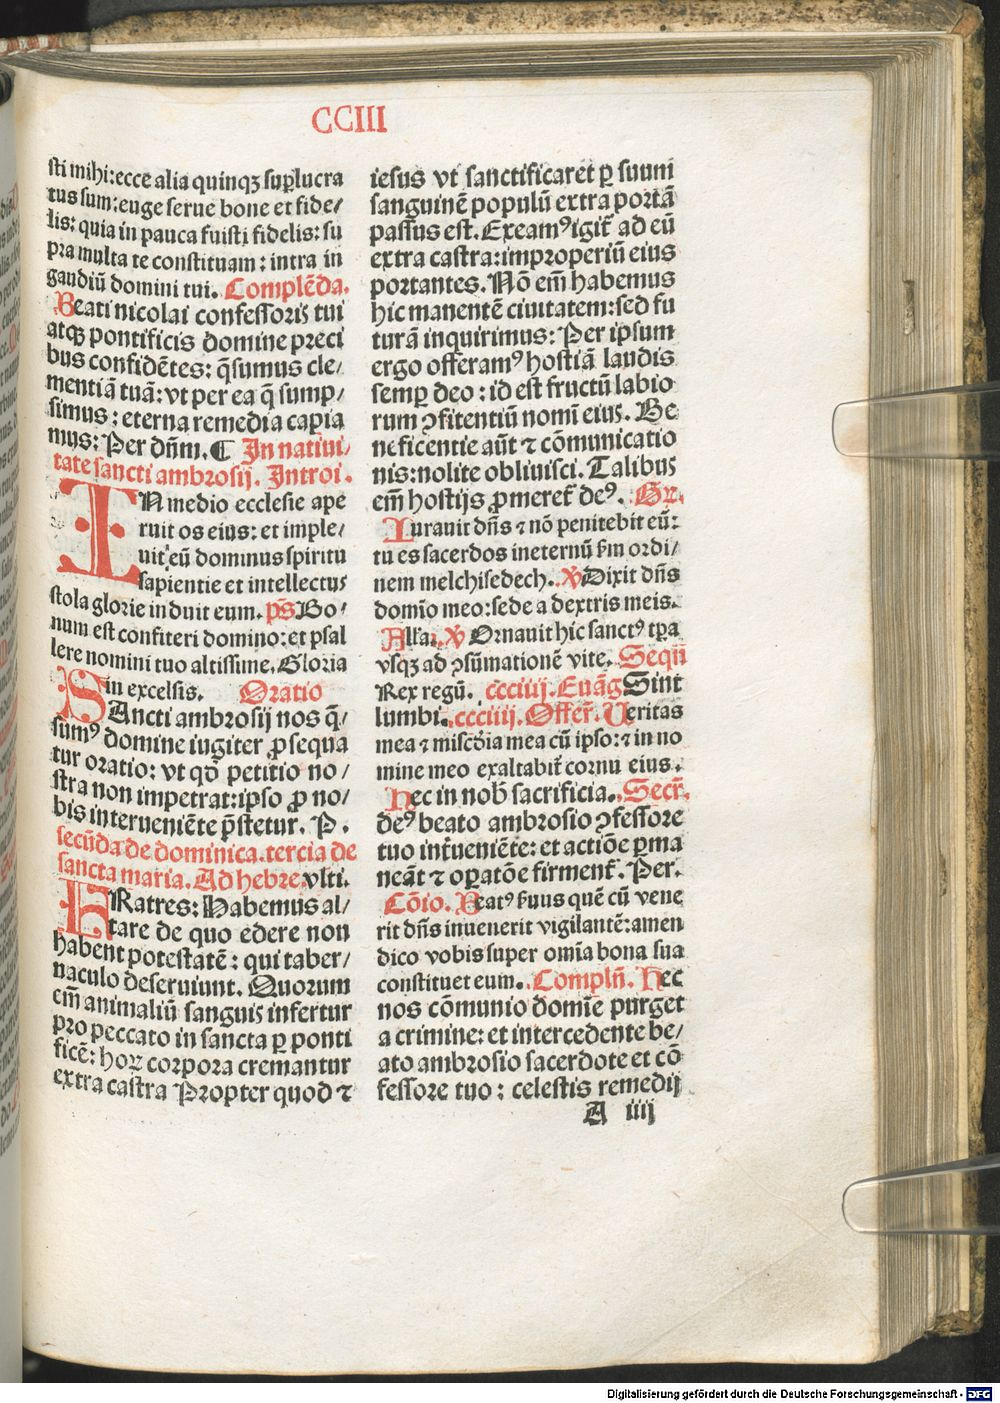 CCIII
sti mihi: ecce alia quinqꝫ suꝑlucra
tus sum: euge serue bone et fide/
lis: quia in pauca fuisti fidelis: su
pra multa te constituam: intra in
gaudiū domini tui. Complēda.
Beati nicolai confessoris tui
atqꝫ pontificis domine preci
bus confidētes: q̄sumus cle/
mentiā tuā: vt per ea q̄ sump/
simus: eterna remedia capia
mus: Per dn̄m. ¶ In natiui/
tate sancti ambrosij. Introi.
IN medio ecclesie ape
ruit os eius: et imple/
uit eū dominus spiritu
sapientie et intellectus
stola glorie induit eum. ps̄ Bo/
num est confiteri domino: et psal
lere nomini tuo altissime. Gloria
in excelsis. Oratio
SAncti ambrosij nos q̄/
sumꝰ domine iugiter ꝓsequa
tur oratio: vt qd̄ petitio no/
stra non impetrat: ipso ꝓ no/
bis interueniēte p̄stetur. P.
secūda de dominica. tercia de
sancta maria. Ad hebre. vlti.
FRatres: Habemus al/
tare de quo edere non
habent potestatē: qui taber/
naculo deseruiunt. Quorum
em̄ animaliū sanguis infertur
pro peccato in sancta ꝑ ponti
ficē: hoꝝ corpora cremantur
extra castra Propter quod ⁊
iesus vt sanctificaret ꝑ suum
sanguinē populū extra portā
passus est. Exeamꝰ igit̄ ad eū
extra castra: improperiū eius
portantes. Nō em̄ habemus
hic manentē ciuitatem: sed fu
turā inquirimus: Per ipsum
ergo offeramꝰ hostiā laudis
semꝑ deo: id est fructū labio
rum ꝯfitentiū nomī eius. Be
neficentie aūt ⁊ cōmunicatio
nis: nolite obliuisci. Talibus
em̄ hostijs ꝓmeret̄ deꝰ. Gr.
Iurauit dn̄s ⁊ nō penitebit eū:
tu es sacerdos ineternū ẜm ordi/
nem melchisedech. ℣ Dixit dn̄s
domīo meo: sede a dextris meis.
Alla. ℣ Ornauit hic sanctꝰ tꝑa
vsqꝫ ad ꝯsūmationē vite. Sequn̄
Rex regū. ccciiij. Euāg Sint
lumbi. ccciiij. Offer̄. Ueritas
mea ⁊ misc̄dia mea cū ipso: ⁊ in no
mine meo exaltabit̄ cornu eius.
Hec in nob̄ sacrificia. Secr̄.
deꝰ beato ambrosio ꝯfessore
tuo int̄ueniēte: et actiōe ꝑma
neāt ⁊ oꝑatōe firment̄. Per.
Cōio. Beatꝰ ẜuus quē cū vene
rit dn̄s inuenerit vigilantē: amen
dico vobis super omīa bona sua
constituet eum. Compln̄. Hec
nos cōmunio domīe purget
a crimine: et intercedente be/
ato ambrosio sacerdote et cō
fessore tuo: celestis remedij
A iiij
Digitalisierung gefördert durch die Deutsche Forschungsgemeinschaft - DFG